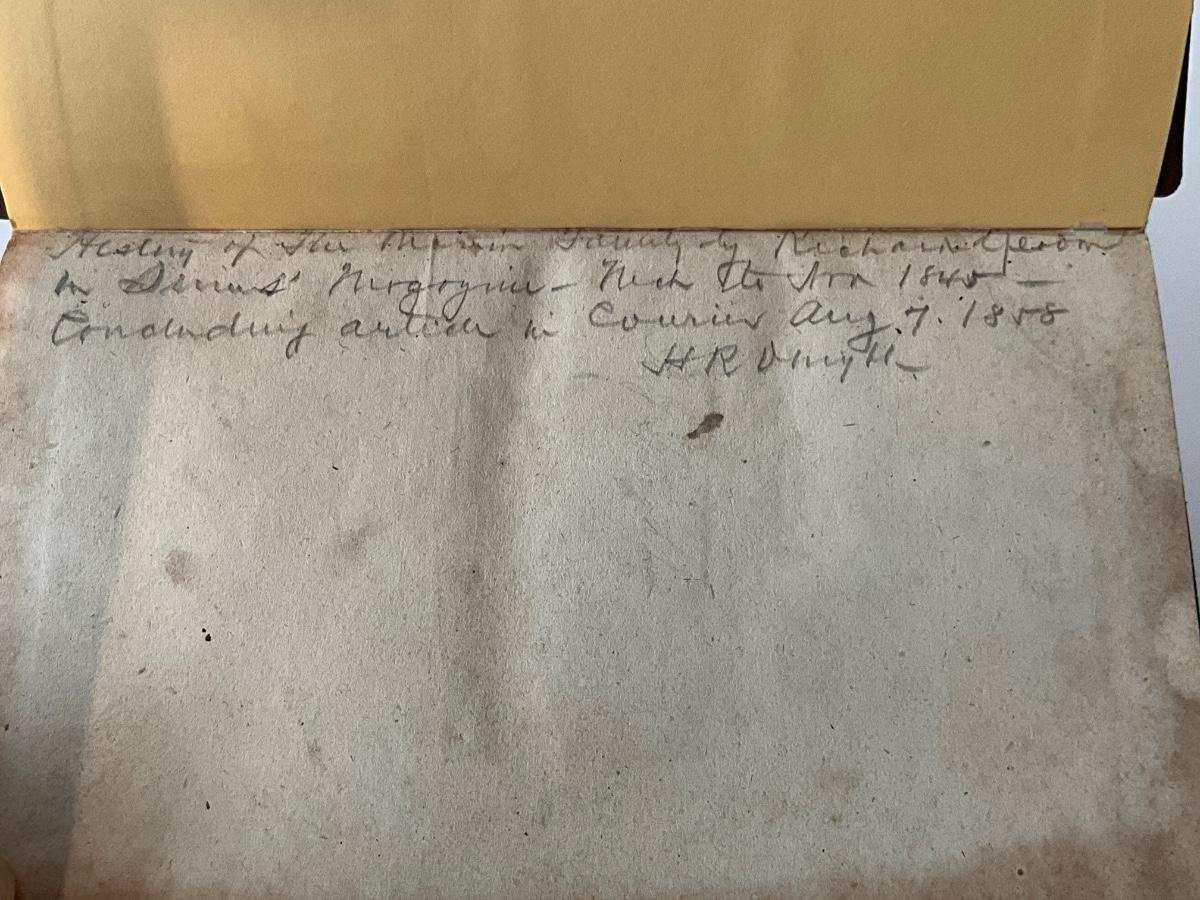 History of the Marvin Family by Richard
in Simms' Magazine – March to Nov 1845 –
Concluding article in Courier Aug 7. 1858
H R Dwight